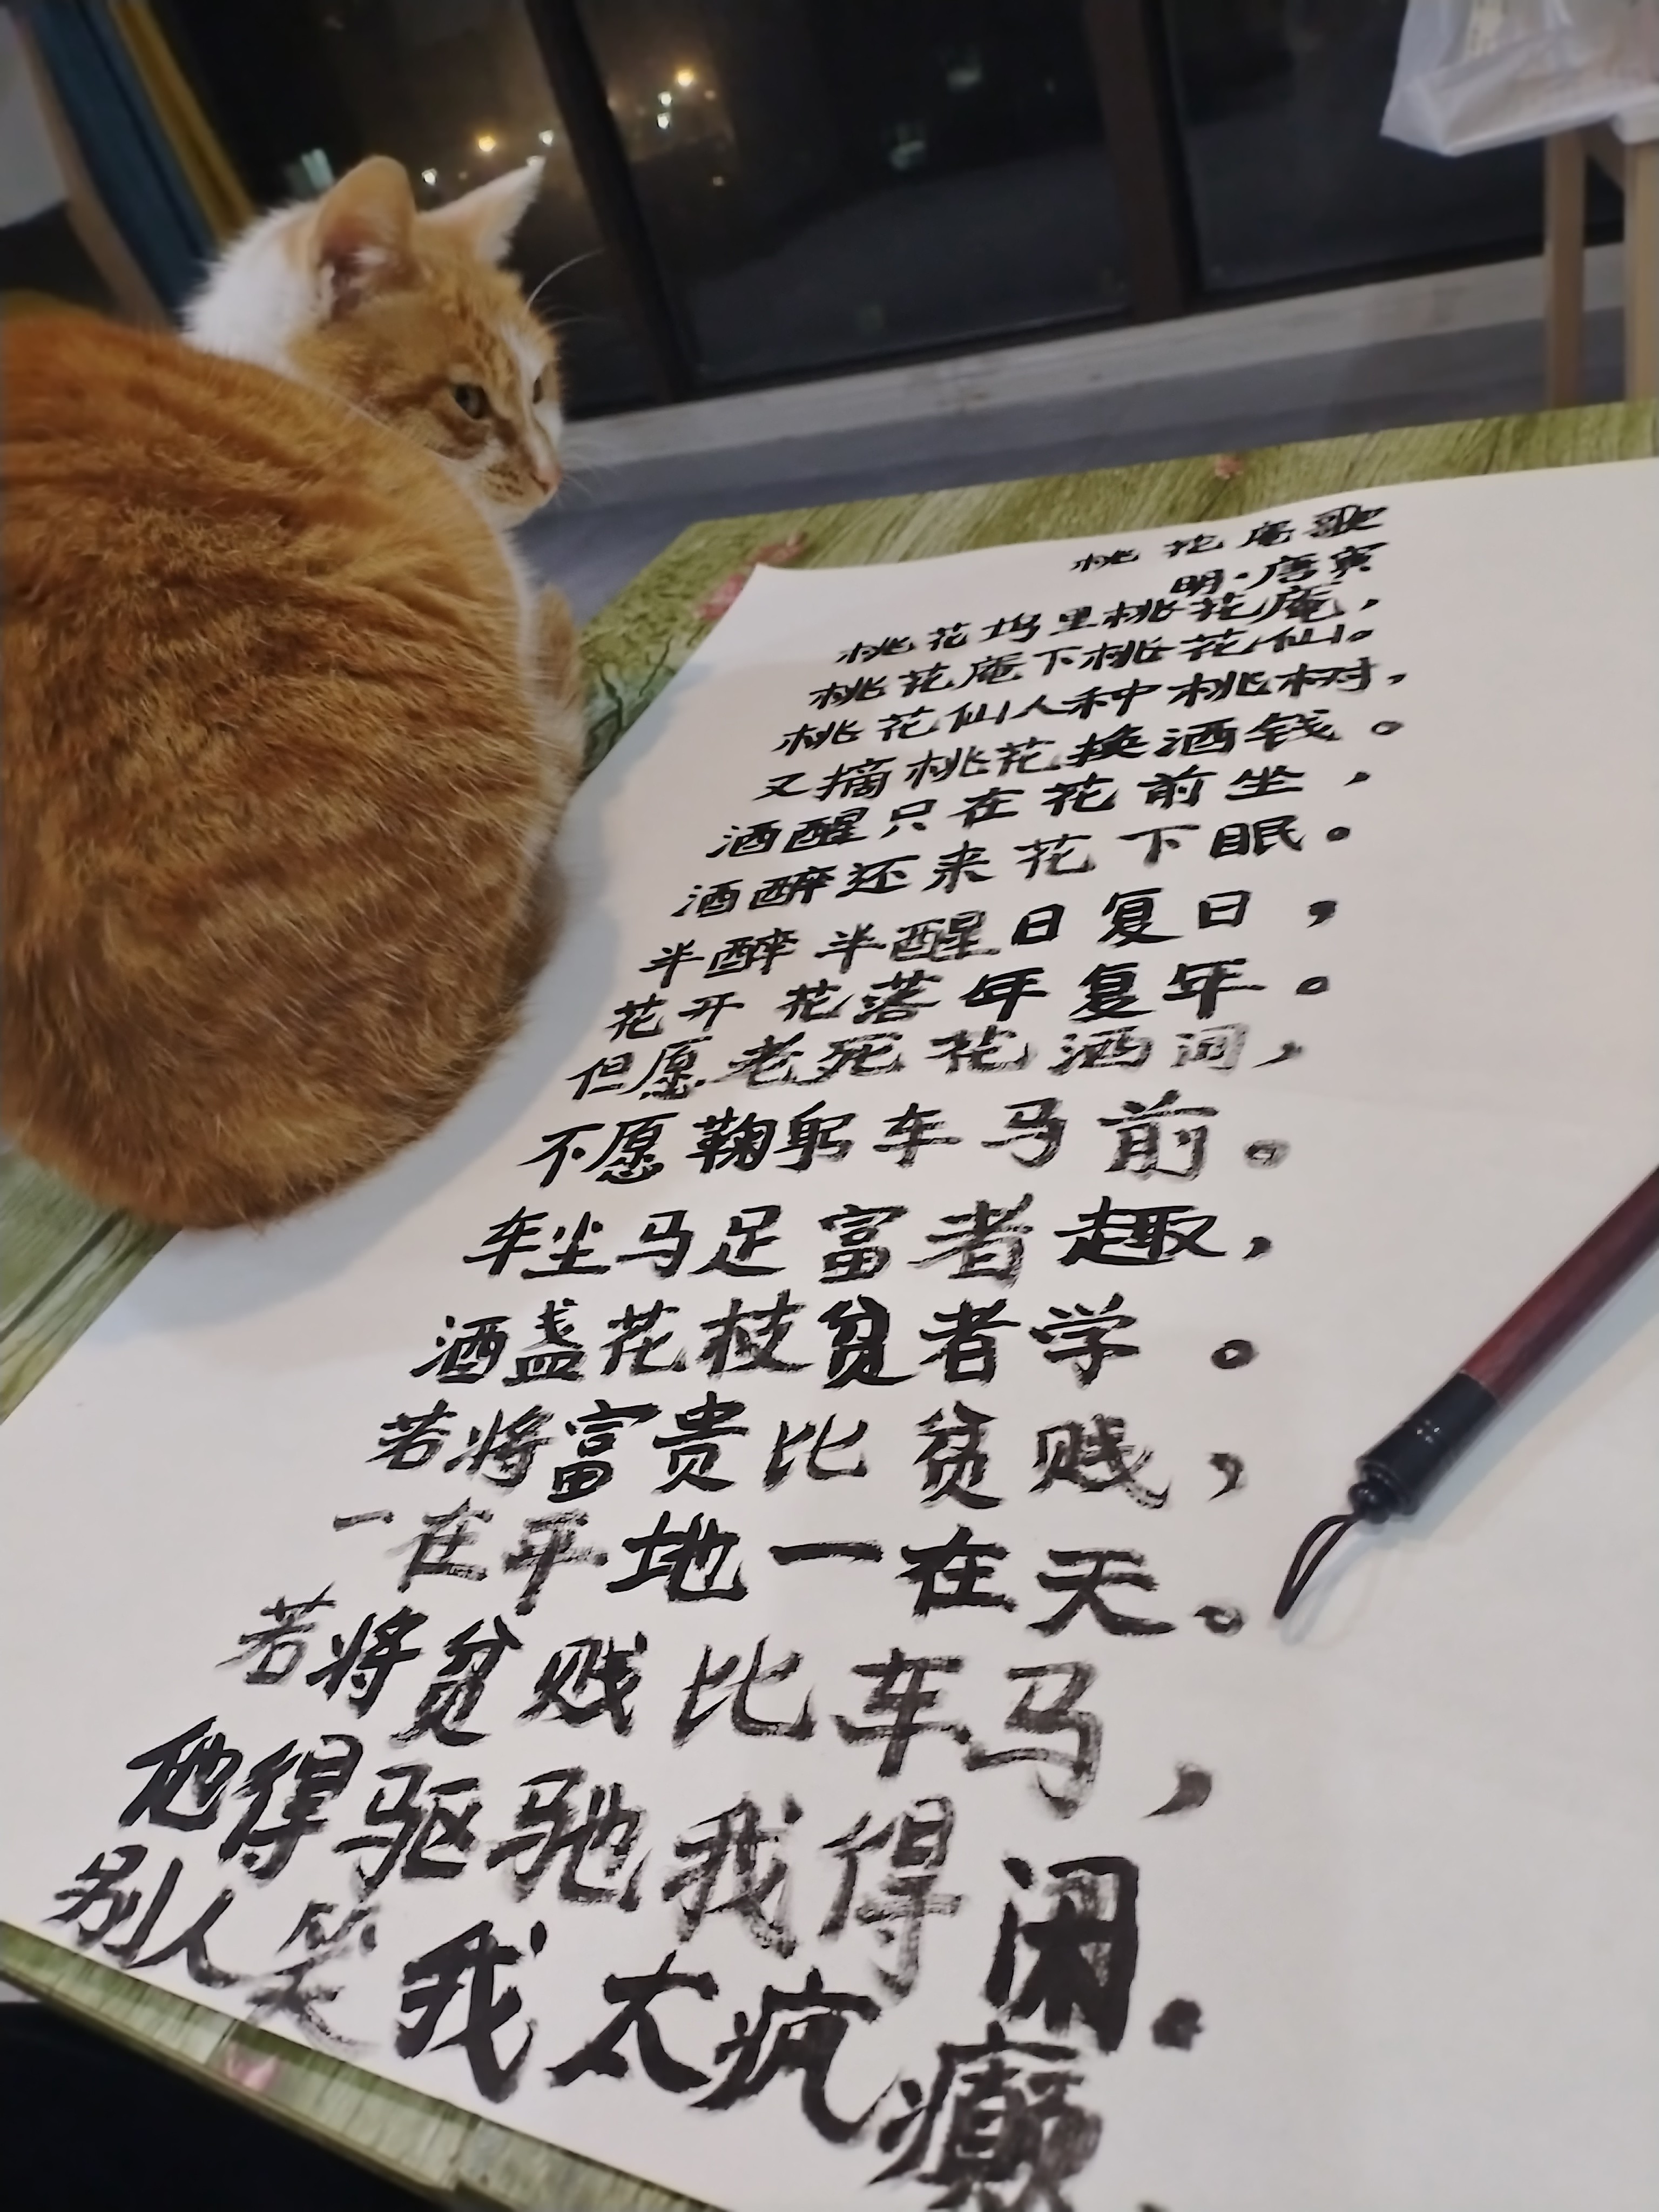 桃花庵歌
明·唐寅
桃花坞里桃花庵，
桃花庵下桃花仙。
桃花仙人种桃树，
又摘桃花换酒钱。
酒醒只在花前坐，
酒醉还来花下眠。
半醉半醒日复日，
花开花落年复年。
但愿老死花酒间，
不愿鞠躬车马前。
车尘马足富者趣，
酒盏花枝贫者学。
若将富贵比贫贱，
一在平地一在天。
若将贫贱比车马，
他得驱驰我得闲.
别人笑我太疯癫